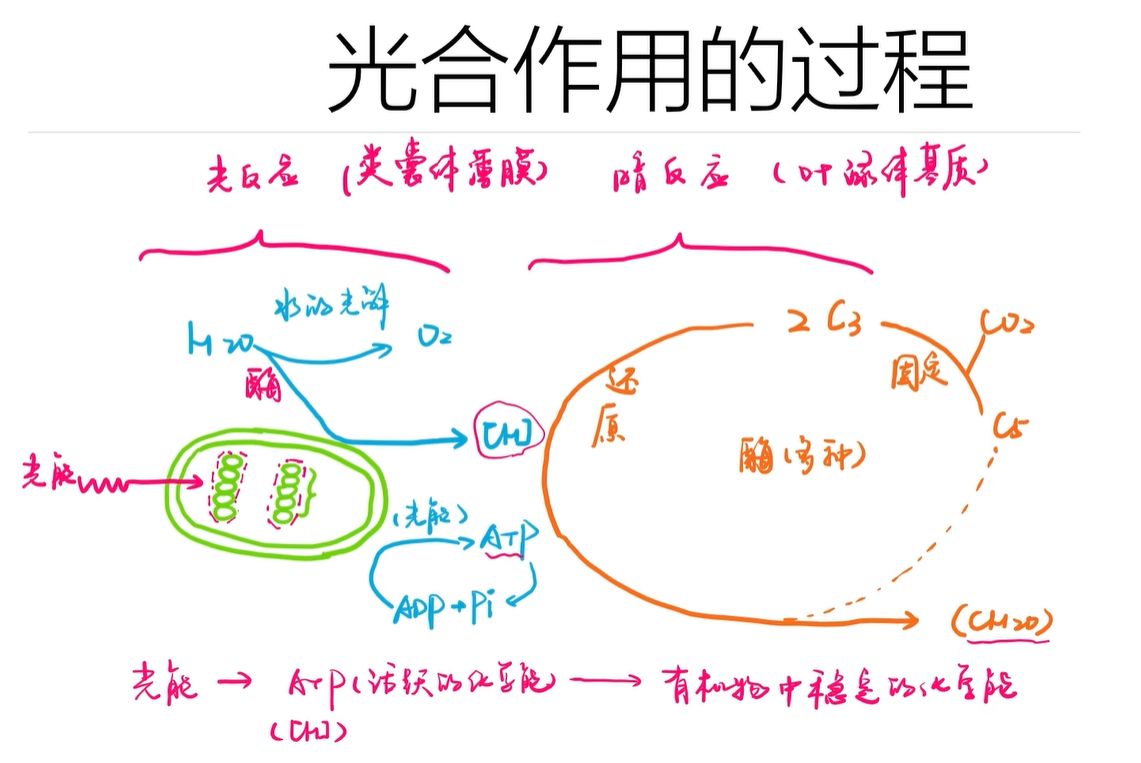 光合作用的过程
光反应 (类囊体薄膜) 暗反应 (叶绿体基质)
水的光解
H2O O2
酶
[H]
光能
(光能)
ATP
ADP+Pi
2C3 CO2
还原
固定
C5
酶(多种)
(CH2O)
光能 → ATP(活跃的化学能) → 有机物中稳定的化学能
([H])